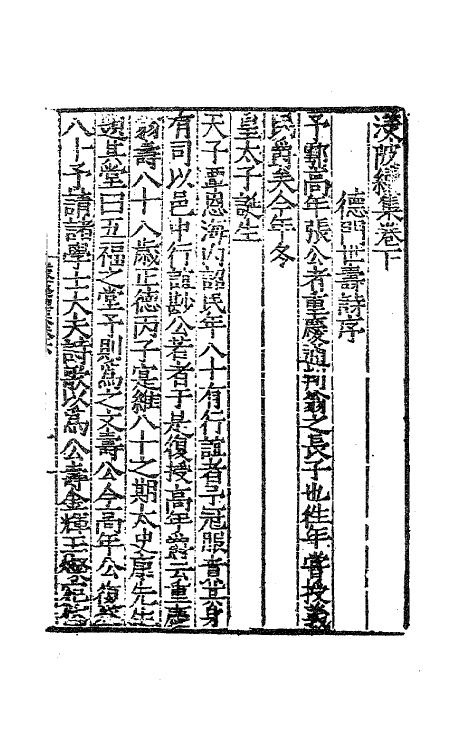 渼陂續集卷下
德門世壽詩序
予鄠高年張公者重慶遇行翁之長子也往年嘗授義
民爵矣今年冬
皇太子誕生
天子覃恩海內詔民年八十有行誼者予冠服育其身
有司以邑中行誼尠公若者于是復授高年爵云重慶
翁壽八十八歲正德丙子寔維八十之期太史康先生
題其堂曰五福之堂予則爲之文壽公今高年公復登
八十予請諸學士大夫詩歌以爲公壽金輝玉